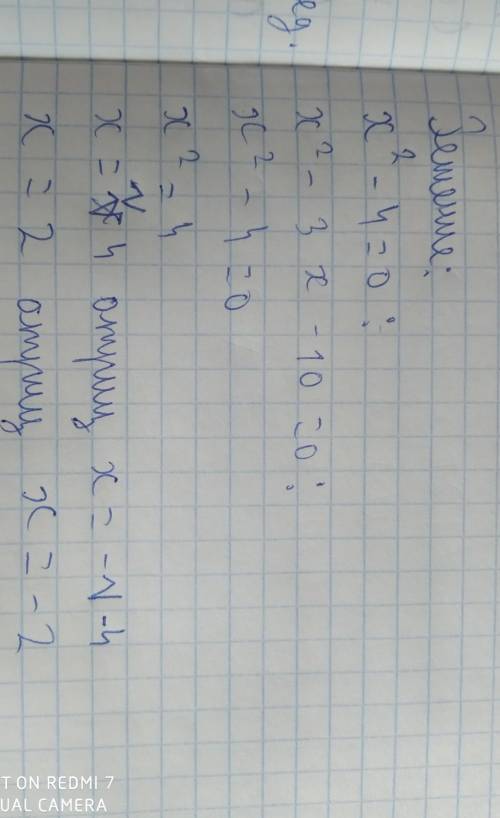 ед.
Решение:
x² - 4 = 0;
x² - 3x - 10 = 0;
x² - 4 = 0
x² = 4
x = √4 x = -√-4
x = 2 x = -2
T ON REDMI 7
UAL CAMERA